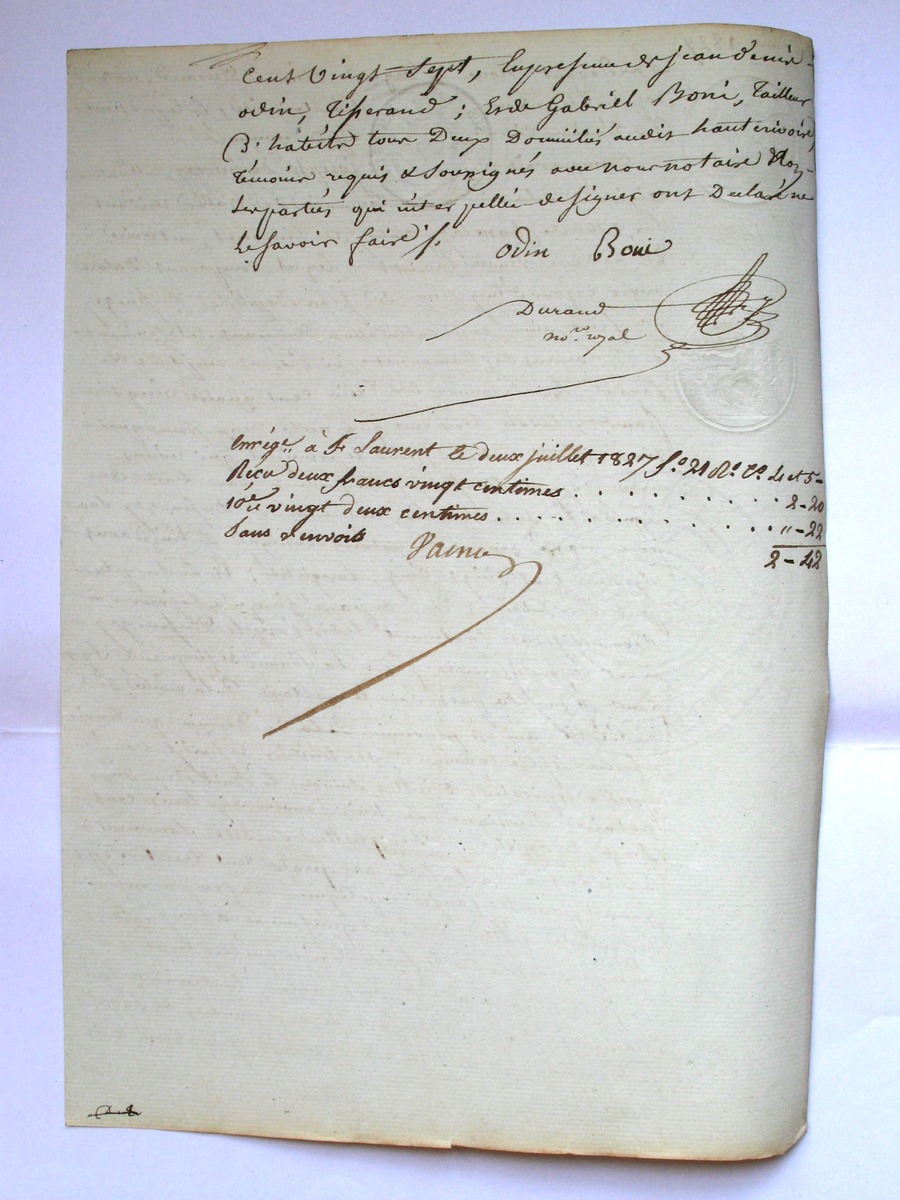 Cent Vingt Sept, En presence de jean denis
odin, Tisserand; Et de Gabriel Boni, Tailleur
D'habits tous Deux Domiciliés audit haut rivoire,
témoins requis & Soussignés avec nous notaire
Les parties qui interpellées de signer ont Déclaré ne
Le savoir faire ./.
odin Boni
Durand
no.re royal
Enrég.é à St Laurent le deux juillet 1827 f.o 21 R.o C.s 4 et 5-
Reçu deux francs vingt centimes . . . . . . . . . . 2-20
10.e vingt deux centimes . . . . . . . . . . " - 22
Sans renvois 2 - 42